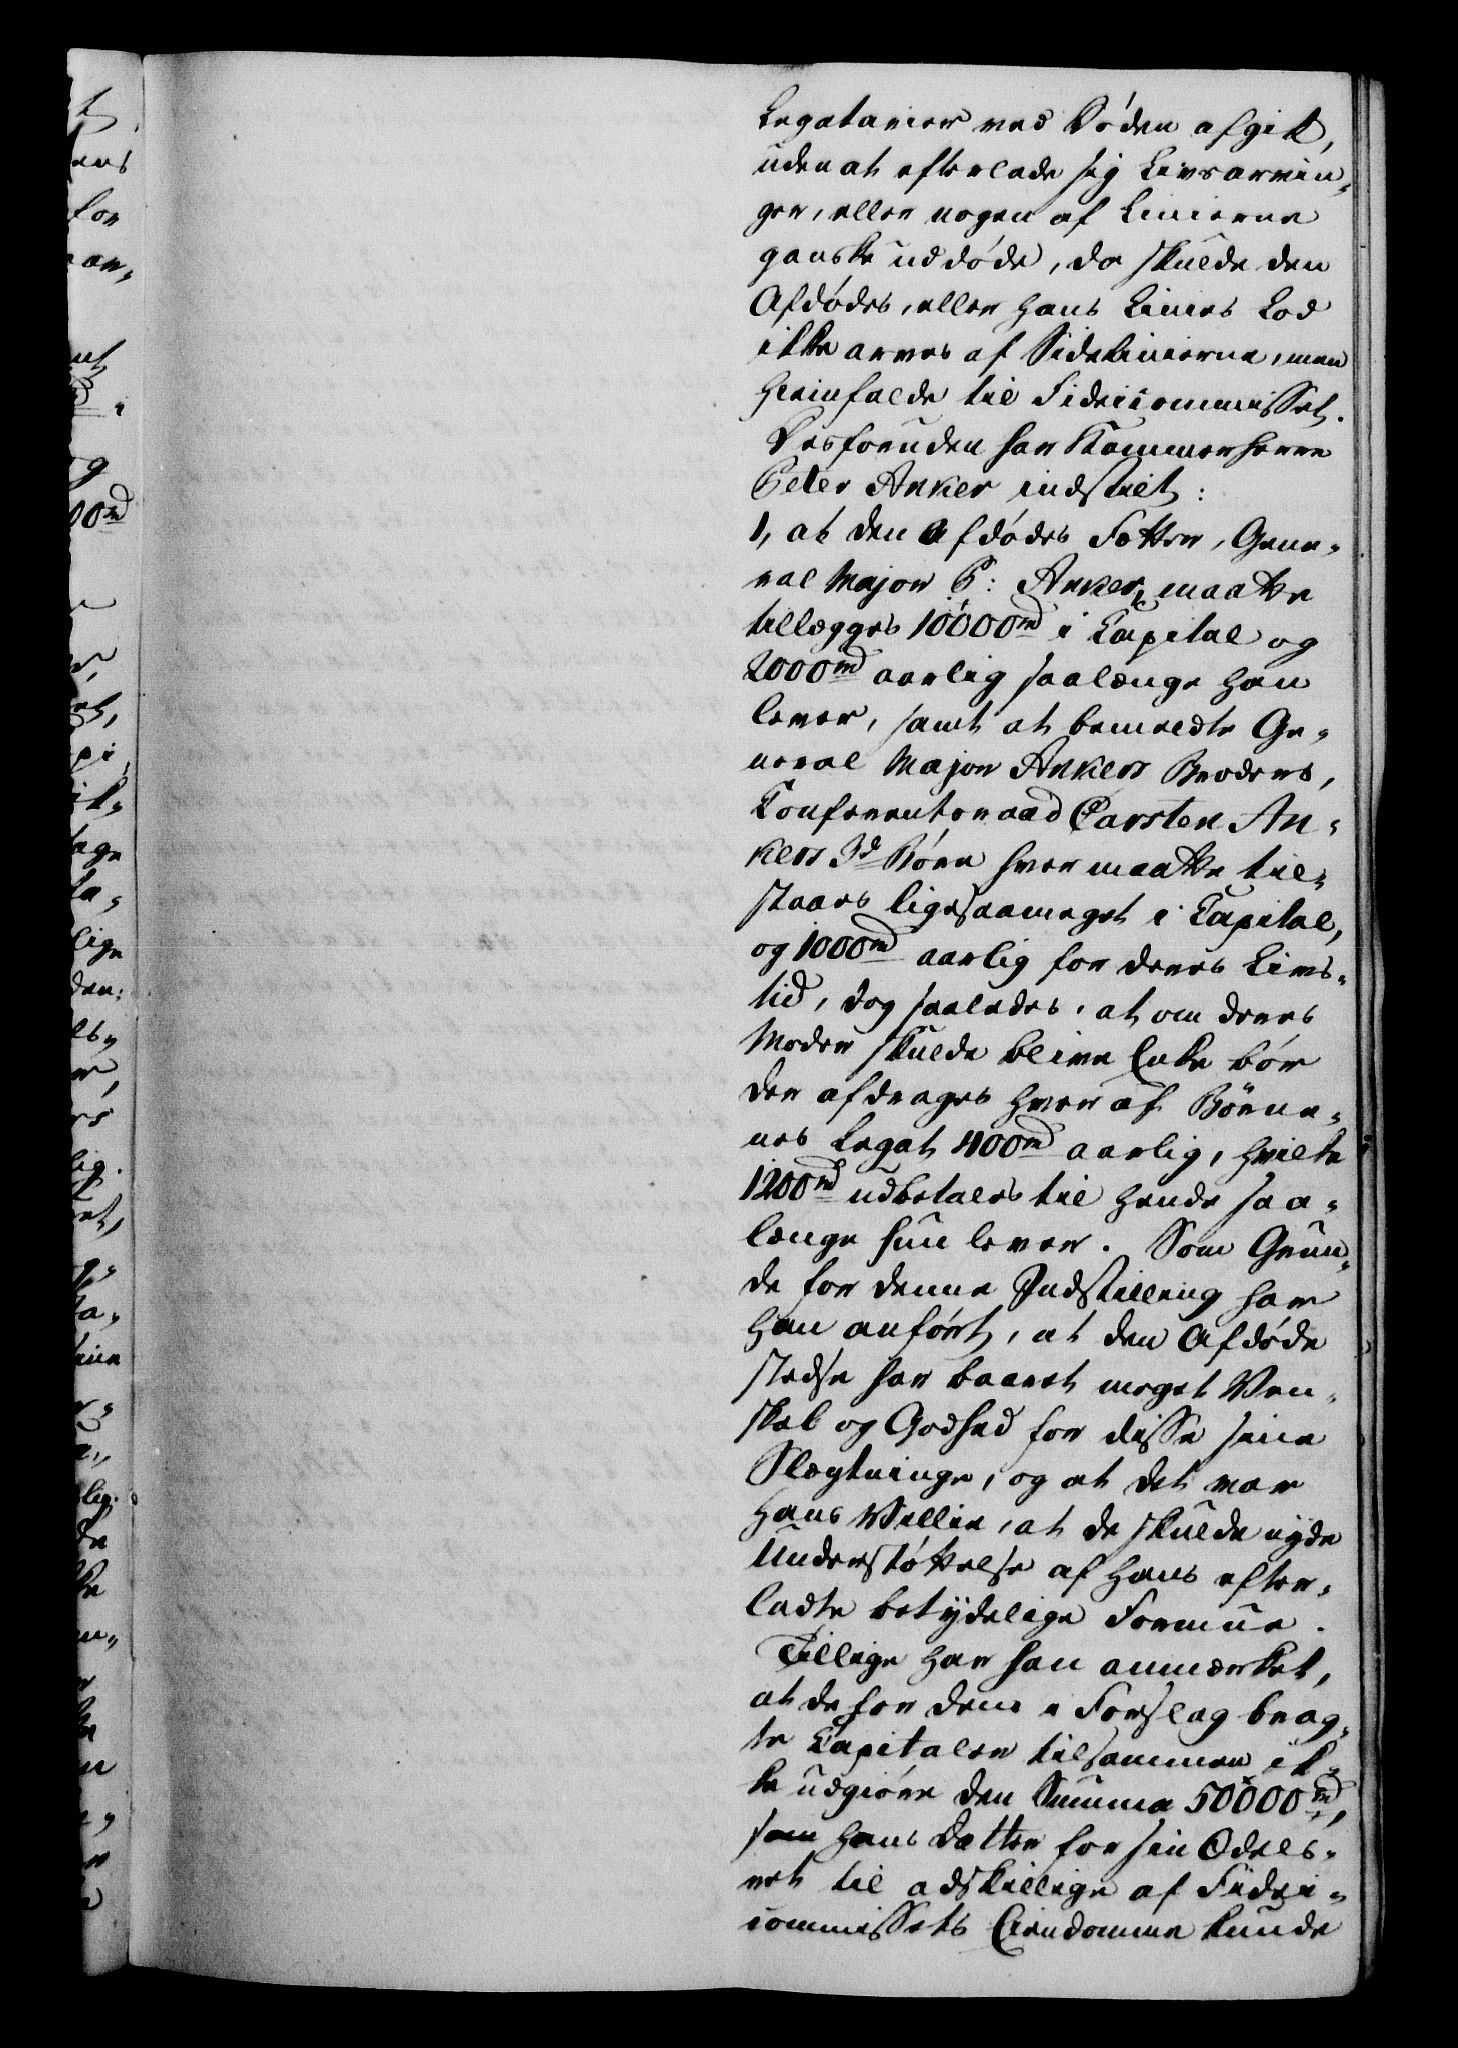 Legatarier ved Døden afgik,
uden at efterlade sig Livsarvin-
ger, eller nogen af Linierne
ganske uddøde, da skulde den
Afdødes, eller hans Linies Lod
ikke arves af Sidelinierne, men
hieimfalde til Fideicommisset.
Desforuden har Kammerherre
Peter Anker indstilet:
1, at den Afdødes Fetter, Gene-
ral Major P: Anker, maatte
tillægges 10000rd i Capital og
2000rd aarlig saalænge han
lever, samt at bemeldte Ge-
neral Major Ankers Broders,
Conferentsraad Carsten An-
kers 3de Børn hver maatte til-
staaes ligesaameget i Capital,
og 1000rd aarlig for deres Livs-
tid, dog saaledes, at om deres
Moder skulde blive Enke bør
der afdrages hver af Børne-
nes Legat 400rd aarlig, hvilke
1200rd udbetales til hende saa-
længe hun lever. Som Grun-
de for denne Indstilling har
han anført, at den Afdøde
stedse har baaret meget Ven-
skab og Godhed for disse sine
Slægtninge, og at det var
hans Villie, at de skulde nyde
Understøttelse af hans efter-
ladte betydelige Formue.
Tillige har han anmærket,
at de for dem i Forslag brag-
te Capitaler tilsammen ik-
ke udgiøre den Summa 50000rd,
som hans Datter for sin Odels-
ret til adskillige af Fidei-
commissets Eiendomme kunde